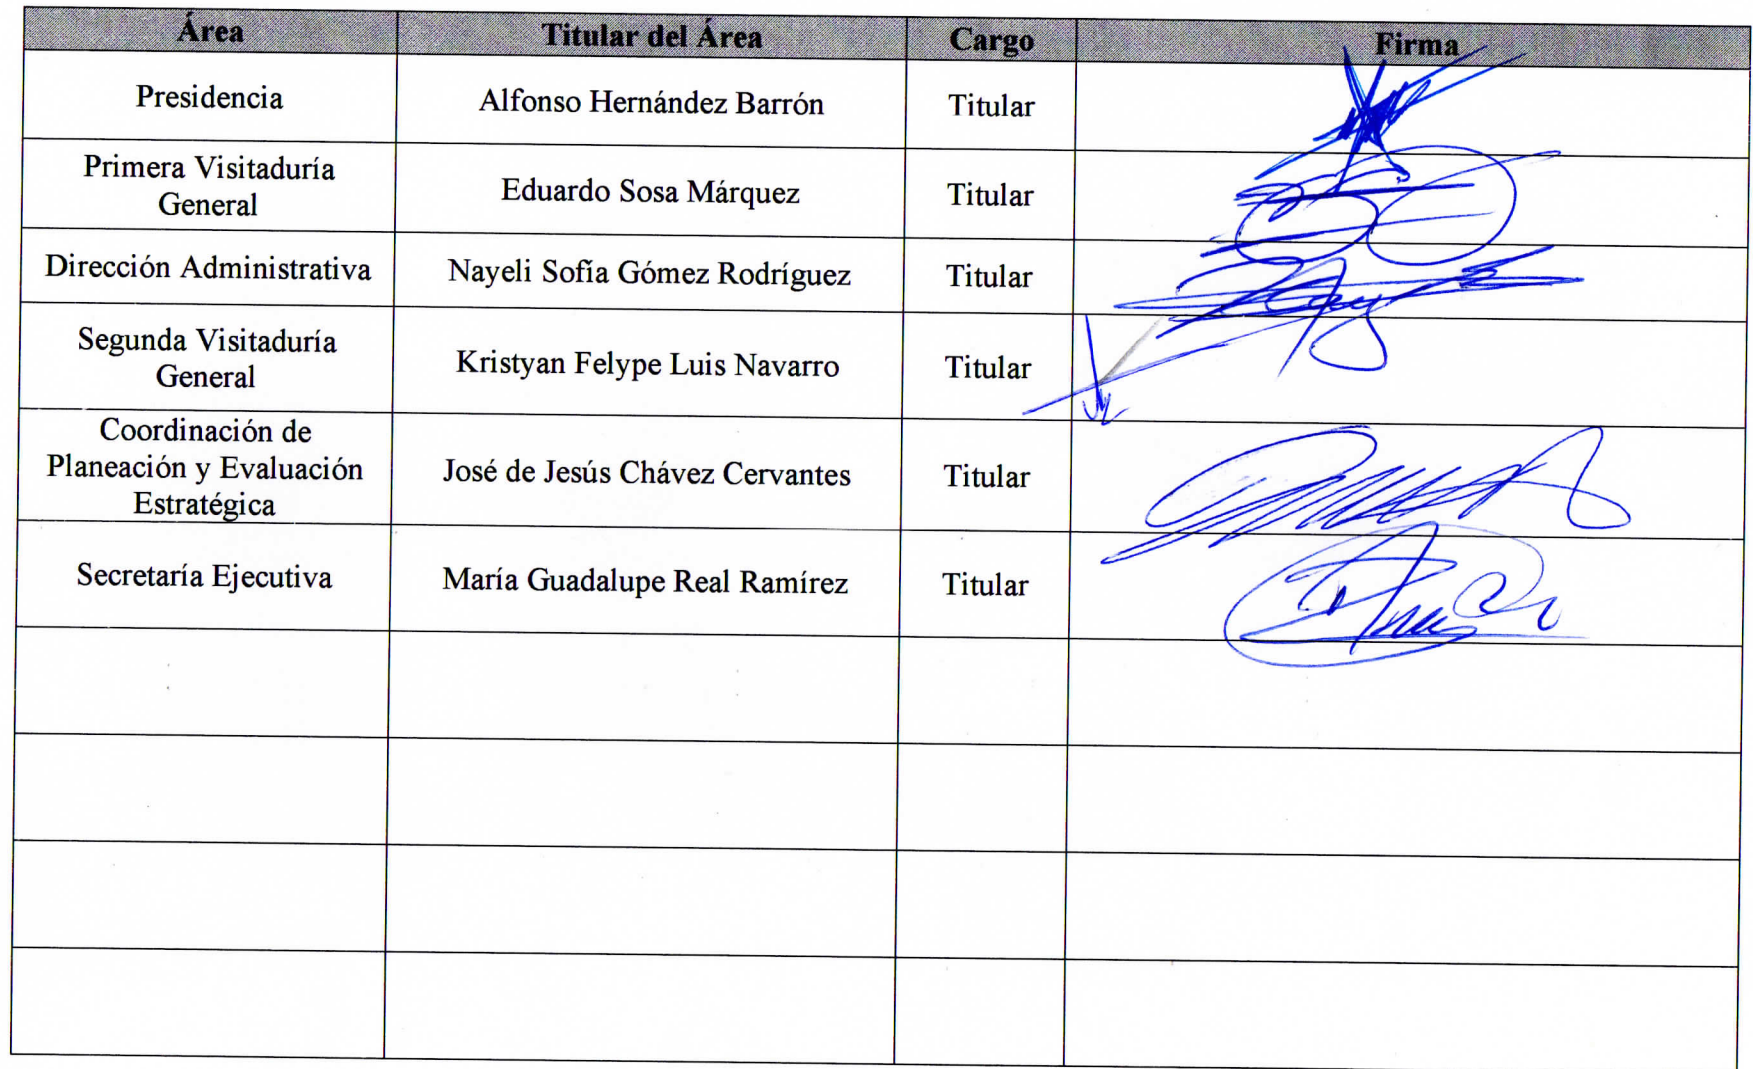 Área Titular del Área Cargo Firma
Presidencia Alfonso Hernández Barrón Titular
Primera Visitaduría
General Eduardo Sosa Márquez Titular
Dirección Administrativa Nayeli Sofía Gómez Rodríguez Titular
Segunda Visitaduría
General Kristyan Felype Luis Navarro Titular
Coordinación de
Planeación y Evaluación
Estratégica José de Jesús Chávez Cervantes Titular
Secretaría Ejecutiva María Guadalupe Real Ramírez Titular